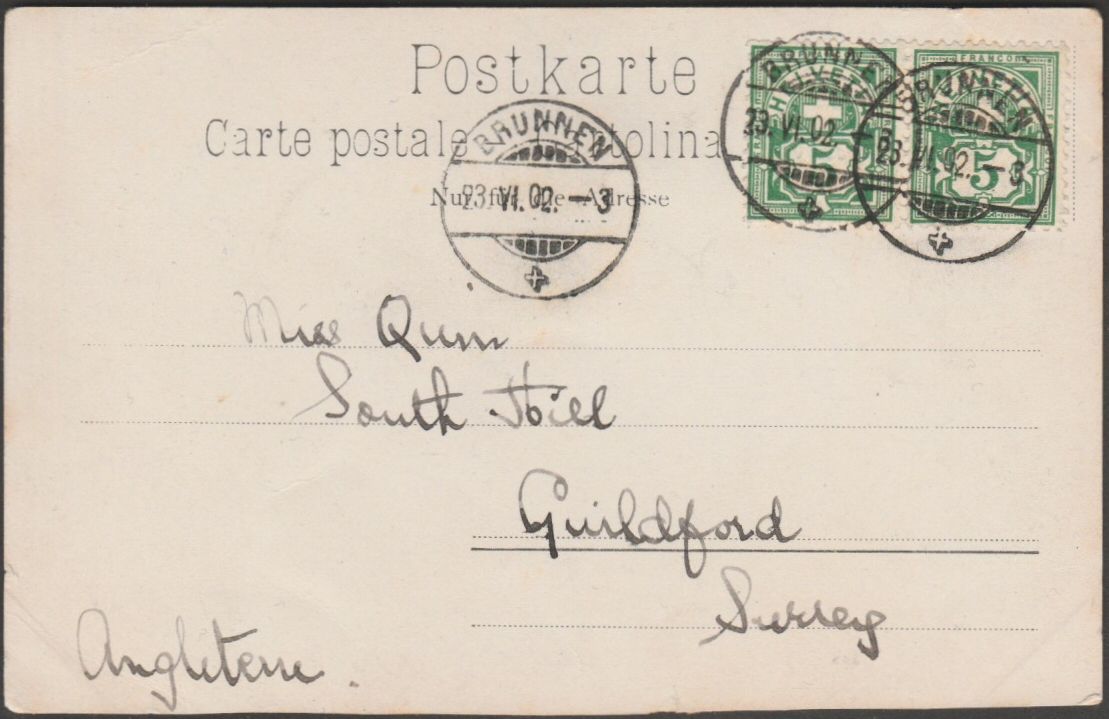 Postkarte
Carte postale tolina
Nur für die Adresse
BRUNNEN
23. VI. 02. – 3
BRUNNEN
HELVETIA
23. VI. 02.
5
FRANCO
BRUNNEN
23. VI. 02. – 3
5
Miss Quin
South Hill
Guildford
Surrey
Angleterre.